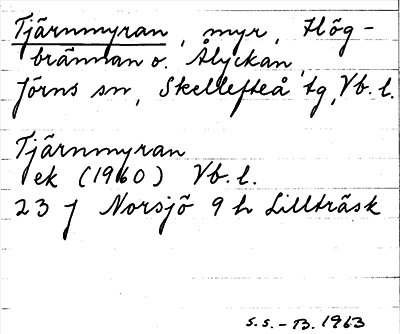 Tjärnmyran, myr, Hög-
brännan o. Ålyckan,
Jörns sn, Skellefteå tg, Vb. l.
Tjärnmyran
ek (1960) Vb. l.
23 J Norsjö 9 h Lillträsk
S.S.-B. 1963